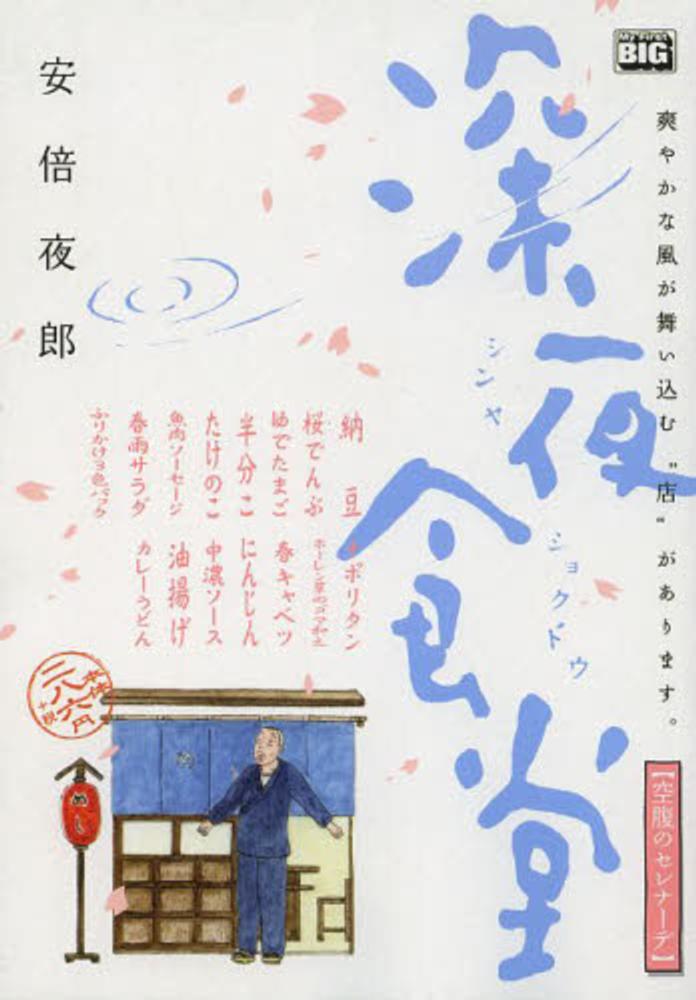 My First
BIG
爽やかな風が舞い込む〝店〟があります。
深夜食堂
シンヤ
ショクドウ
【空腹のセレナーデ】
安倍夜郎
納豆
桜でんぶ
ゆでたまご
半分こ
たけのこ
魚肉ソーセージ
春雨サラダ
ふりかけ3色パック
ナポリタン
ホーレン草のゴマ和え
春キャベツ
にんじん
中濃ソース
油揚げ
カレーうどん
本体
二八六円
+税
めし